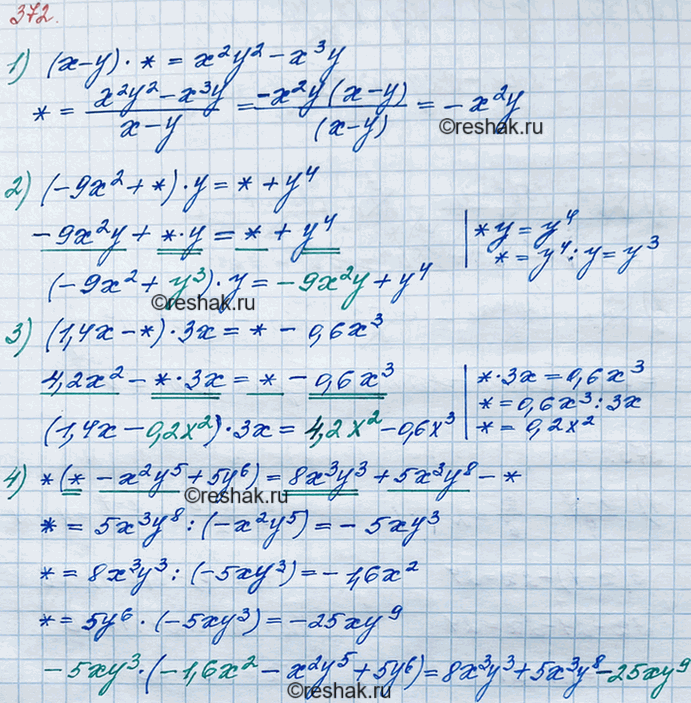 372.
1) (x-y) · * = x²y² - x³y
* = x²y² - x³y / x-y = -x²y(x-y) / (x-y) = -x²y
©reshak.ru
2) (-9x² + *) · y = * + y⁴
-9x²y + * · y = * + y⁴
*y = y⁴
* = y⁴ : y = y³
(-9x² + y³) · y = -9x²y + y⁴
©reshak.ru
3) (1,4x - *) · 3x = * - 0,6x³
4,2x² - * · 3x = * - 0,6x³
* · 3x = 0,6x³
* = 0,6x³ : 3x
* = 0,2x²
(1,4x - 0,2x²) · 3x = 4,2x² - 0,6x³
4) * (* - x²y⁵ + 5y⁶) = 8x³y³ + 5x³y⁸ - *
©reshak.ru
* = 5x³y⁸ : (-x²y⁵) = -5xy³
* = 8x³y³ : (-5xy³) = -1,6x²
* = 5y⁶ · (-5xy³) = -25xy⁹
-5xy³ · (-1,6x² - x²y⁵ + 5y⁶) = 8x³y³ + 5x³y⁸ - 25xy⁹
©reshak.ru